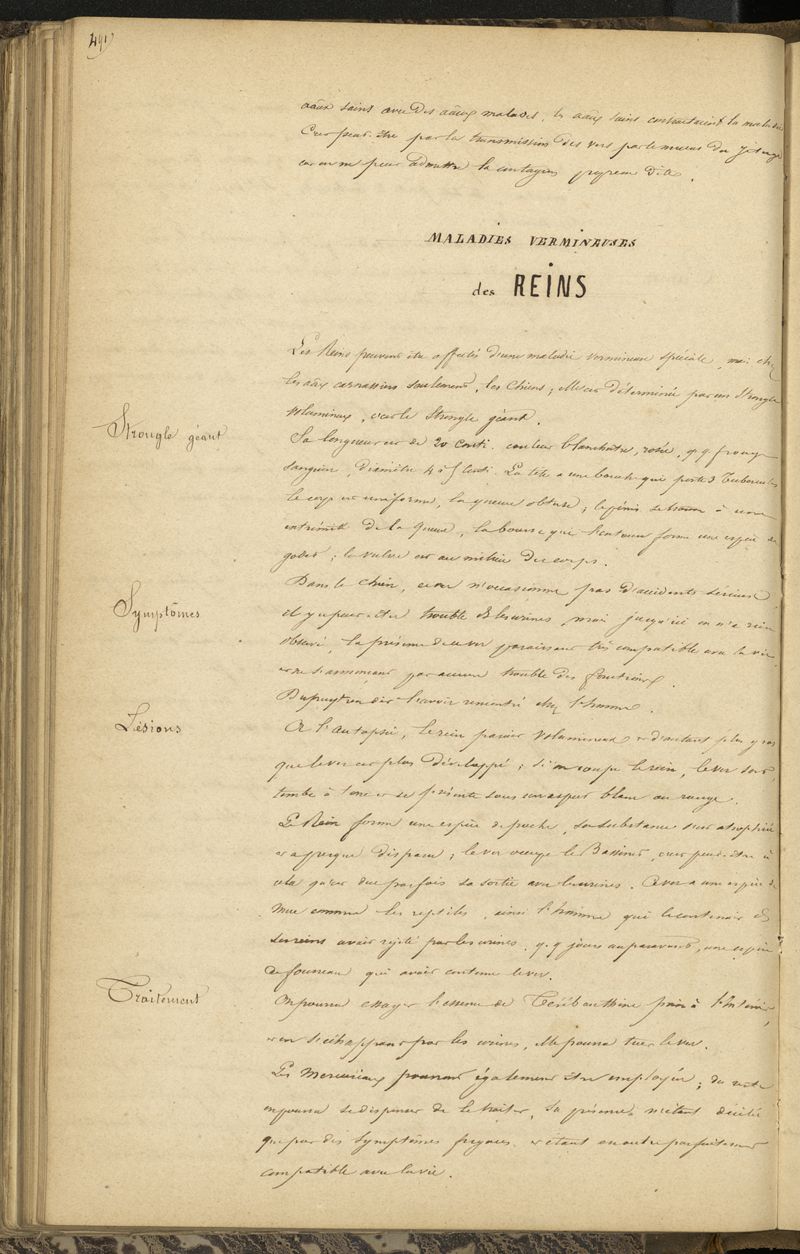 491
aaux sains avec des aaux malades, les aaux sains contractaient la maladie
C'est peut-être par la transmission des vers par le mucus du jetage
car on ne peut admettre la contagion proprem dite.
MALADIES VERMINEUSES
des REINS
Les Reins peuvent être affectés d'une maladie vermineuse spéciale, mais chez
les aaux carnassiers seulement, les Chiens; elle est déterminée par un Strongle
Strongle géant
volumineux, c'est le Strongle géant.
Sa longueur est de 20 centi. couleur blanchâtre, rosée, qq f rouge
sanguin, diamètre 4 à 5 Centi. La tête a une bouche qui porte 3 Tubercules
le corps est uniforme, la queue obtuse; le pénis se trouve à une
extrémité de la queue, la bourse qui l'entoure forme une espèce de
godet; la vulve est au milieu du corps.
Symptômes
Dans le chien, ce ver n'occasionne pas d'accidents sérieux
il y a peut-être trouble des urines, mais jusqu'ici on n'a rien
observé, la présence de ce ver paraissant très compatible avec la vie
et ne s'annonçant par aucun trouble des fonctions.
Dupuytren dit l'avoir rencontré chez l'homme.
Lésions
A l'autopsie, le rein paraît volumineux et d'autant plus gros
que le ver est plus développé; si on coupe le rein, le ver sort,
tombe à terre et se présente sous un aspect blanc ou rouge.
Le Rein forme une espèce de poche, sa substance s'est atrophiée
et a presque disparu; le ver occupe le Bassinet, c'est peut-être à
cela qu'est due parfois sa sortie avec les urines. Ce ver a une espèce de
mue comme les reptiles, ainsi l'homme qui le contenait ds
ses reins avait rejeté par les urines, qq jours auparavant, une espèce
de fourreau qui avait contenu le ver.
Traitement
On pourra essayer l'essence de Térébenthine pris à l'intérieur,
et en s'échappant par les urines, elle pourra tuer le ver.
Les Mercuriaux pourront également être employés; du reste
on pourra se dispenser de le traiter, sa présence n'étant décelée
que par des symptômes fugaces et étant en outre parfaitement
compatible avec la vie.